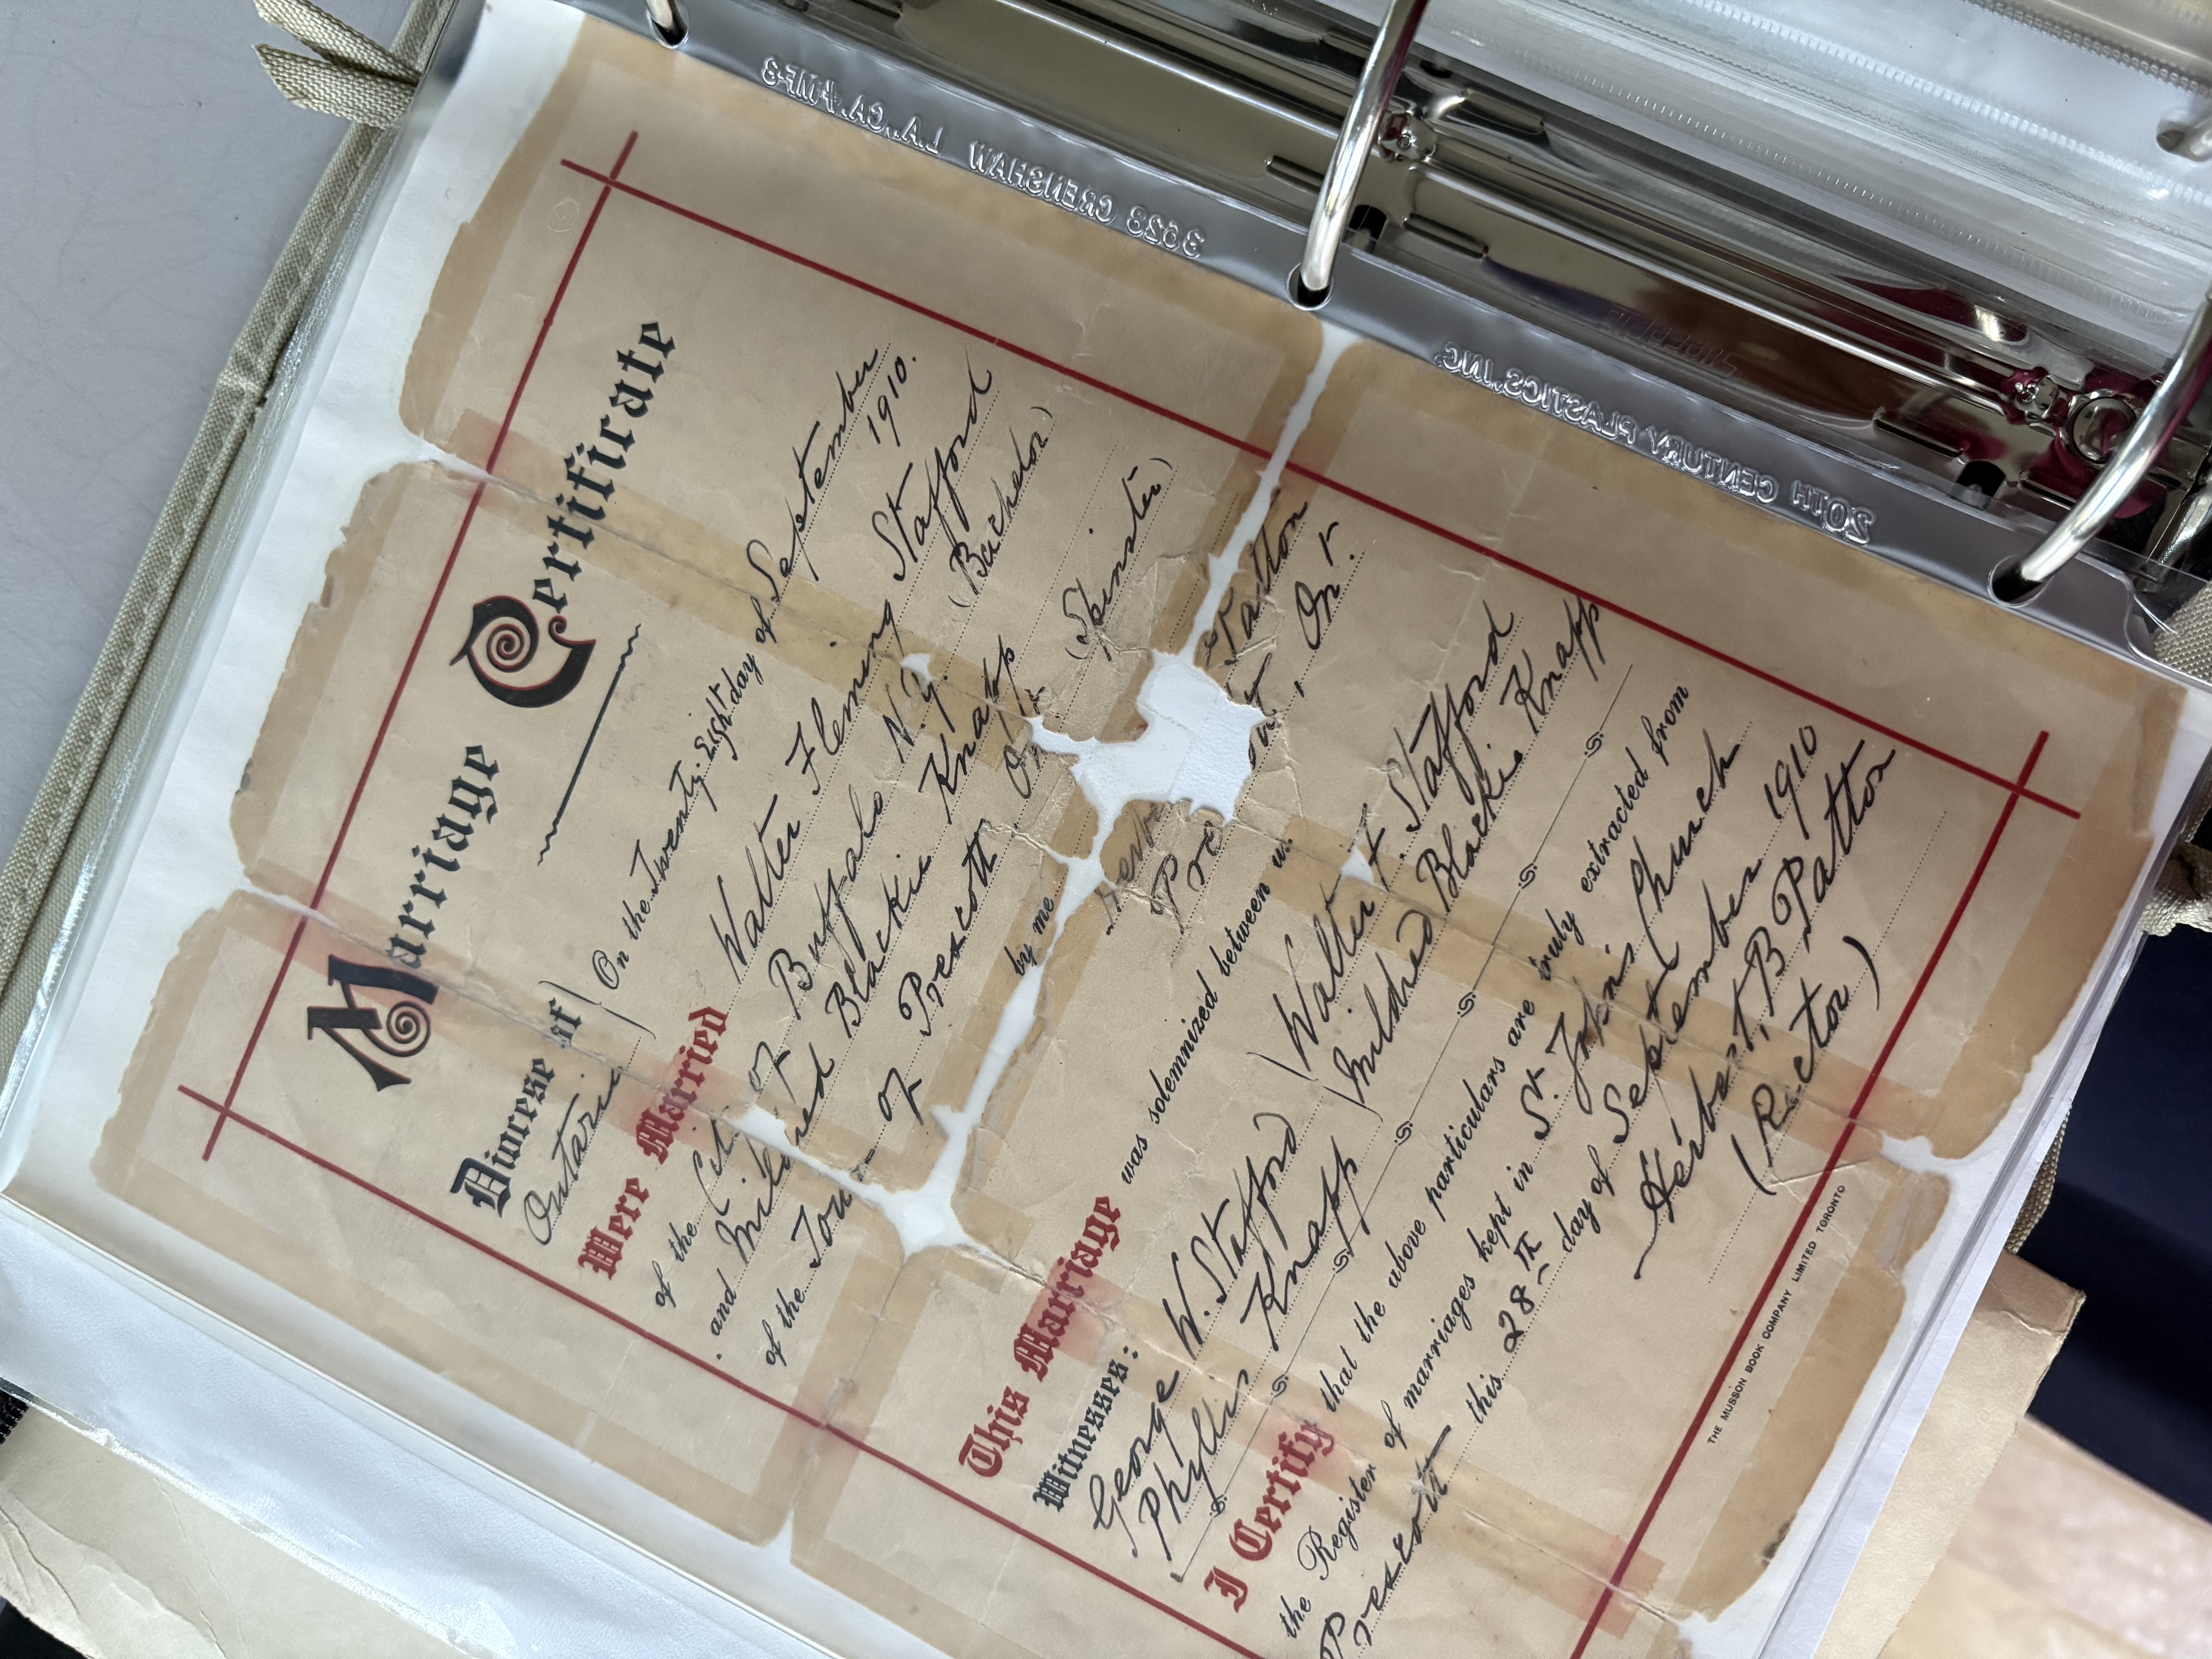 Marriage Certificate
Diocese of
Ontario
On the Twenty-Eight day of September
1910.
Were Married Walter Fleming Stafford
of the City of Buffalo N.Y. (Bachelor)
and Mildred Blackie Knapp
of the Town of Prescott Ont. (Spinster)
by me
Patton
Pre , Ont.
This Marriage was solemnized between us
Witnesses:
George W. Stafford
Phyllis Knapp
Walter F. Stafford
Mildred Blackie Knapp
I Certify that the above particulars are truly extracted from
the Register of marriages kept in St. John's Church
Prescott this 28th day of September 1910
Herbert B Patton
(Rector)
THE MUSSON BOOK COMPANY LIMITED TORONTO
20TH CENTURY PLASTICS, INC.
3628 CRENSHAW L.A., CA.